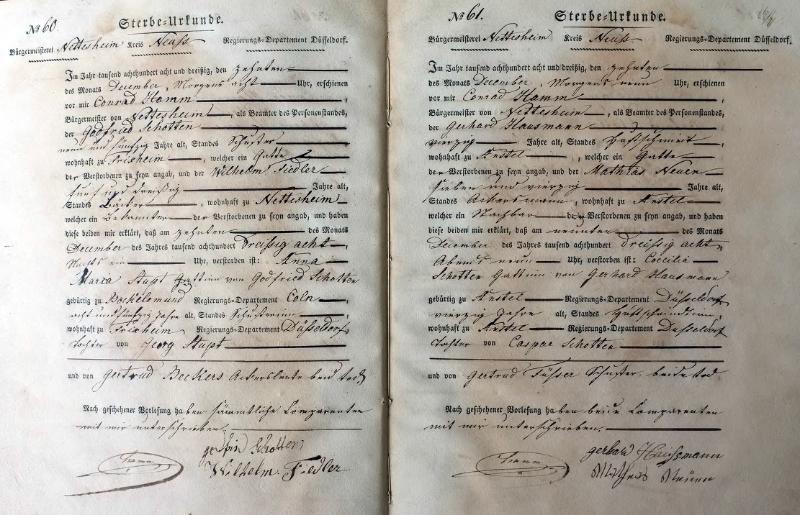 № 60.
Sterbe-Urkunde.
Bürgermeisterei Nettesheim Kreis Neuss Regierungs-Departement Düsseldorf.
Im Jahr tausend achthundert acht und dreißig, den zehnten
des Monats December, Morgens acht Uhr, erschienen
vor mir Conrad Hamm
Bürgermeister von Nettesheim, als Beamter des Personenstandes,
der Godfried Schotten
neun und fünfzig Jahre alt, Standes Schuster
wohnhaft zu Frixheim, welcher ein Gatte
der Verstorbenen zu seyn angab, und der Wilhelm Fiedler
fünf und dreißig Jahre alt,
Standes Bäcker, wohnhaft zu Nettesheim
welcher ein Bekannter der Verstorbenen zu seyn angab, und haben
diese beiden mir erklärt, daß am zehnten des Monats
December des Jahres tausend achthundert dreissig acht
Uhr, verstorben ist: Anna
Maria Stupt Gattinn von Godfried Schotten
gebürtig zu Regierungs-Departement Cöln,
acht und fünfzig Jahre alt, Standes
wohnhaft zu Frixheim Regierungs-Departement Düsseldorf
Tochter von Georg Stupt
und von Gertrud Beckers Ackersleute beide todt
Nach geschehener Vorlesung haben sämmtliche Comparenten
mit mir unterschrieben.
Schotten
Hamm Wilhelm Fiedler
№ 61.
Sterbe-Urkunde.
Bürgermeisterei Nettesheim Kreis Neuss Regierungs-Departement Düsseldorf.
Im Jahr tausend achthundert acht und dreißig, den zehnten
des Monats December, Morgens neun Uhr, erschienen
vor mir Conrad Hamm
Bürgermeister von Nettesheim, als Beamter des Personenstandes,
der Gerhard Hausmann
vierzig Jahre alt, Standes
wohnhaft zu Anstel, welcher ein Gatte
der Verstorbenen zu seyn angab, und der Mathias Neuen
sieben und vierzig Jahre alt,
Standes Ackersmann, wohnhaft zu Anstel
welcher ein Nachbar der Verstorbenen zu seyn angab, und haben
diese beiden mir erklärt, daß am neunten des Monats
December des Jahres tausend achthundert dreissig acht
Abends neun Uhr, verstorben ist: Cäcilia
Schotten Gattinn von Gerhard Hausmann
gebürtig zu Anstel Regierungs-Departement Düsseldorf
vierzig Jahre alt, Standes
wohnhaft zu Anstel Regierungs-Departement Düsseldorf
Tochter von Caspar Schotten
und von Gertrud Füsser Schuster beide todt
Nach geschehener Vorlesung haben beide Comparenten
mit mir unterschrieben.
gerhard Haussmann
Hamm Mathias Neuen